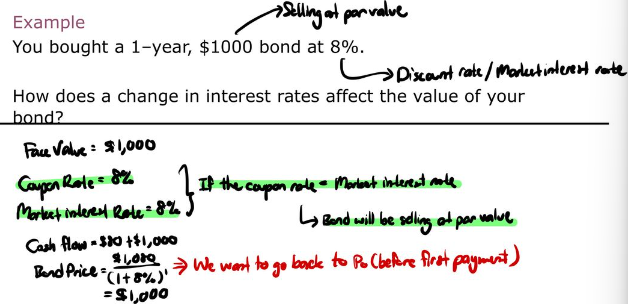 Example
→ Selling at par value
You bought a 1–year, $1000 bond at 8%.
→ Discount rate / Market interest rate
How does a change in interest rates affect the value of your
bond?
Face Value = $1,000
Coupon Rate = 8%
Market interest Rate = 8%
If the coupon rate = Market interest rate
↳ Bond will be selling at par value
Cash flow = $80 + $1,000
Bond Price = $1,080 / (1 + 8%)¹ → We want to go back to P₀ (before first payment)
= $1,000